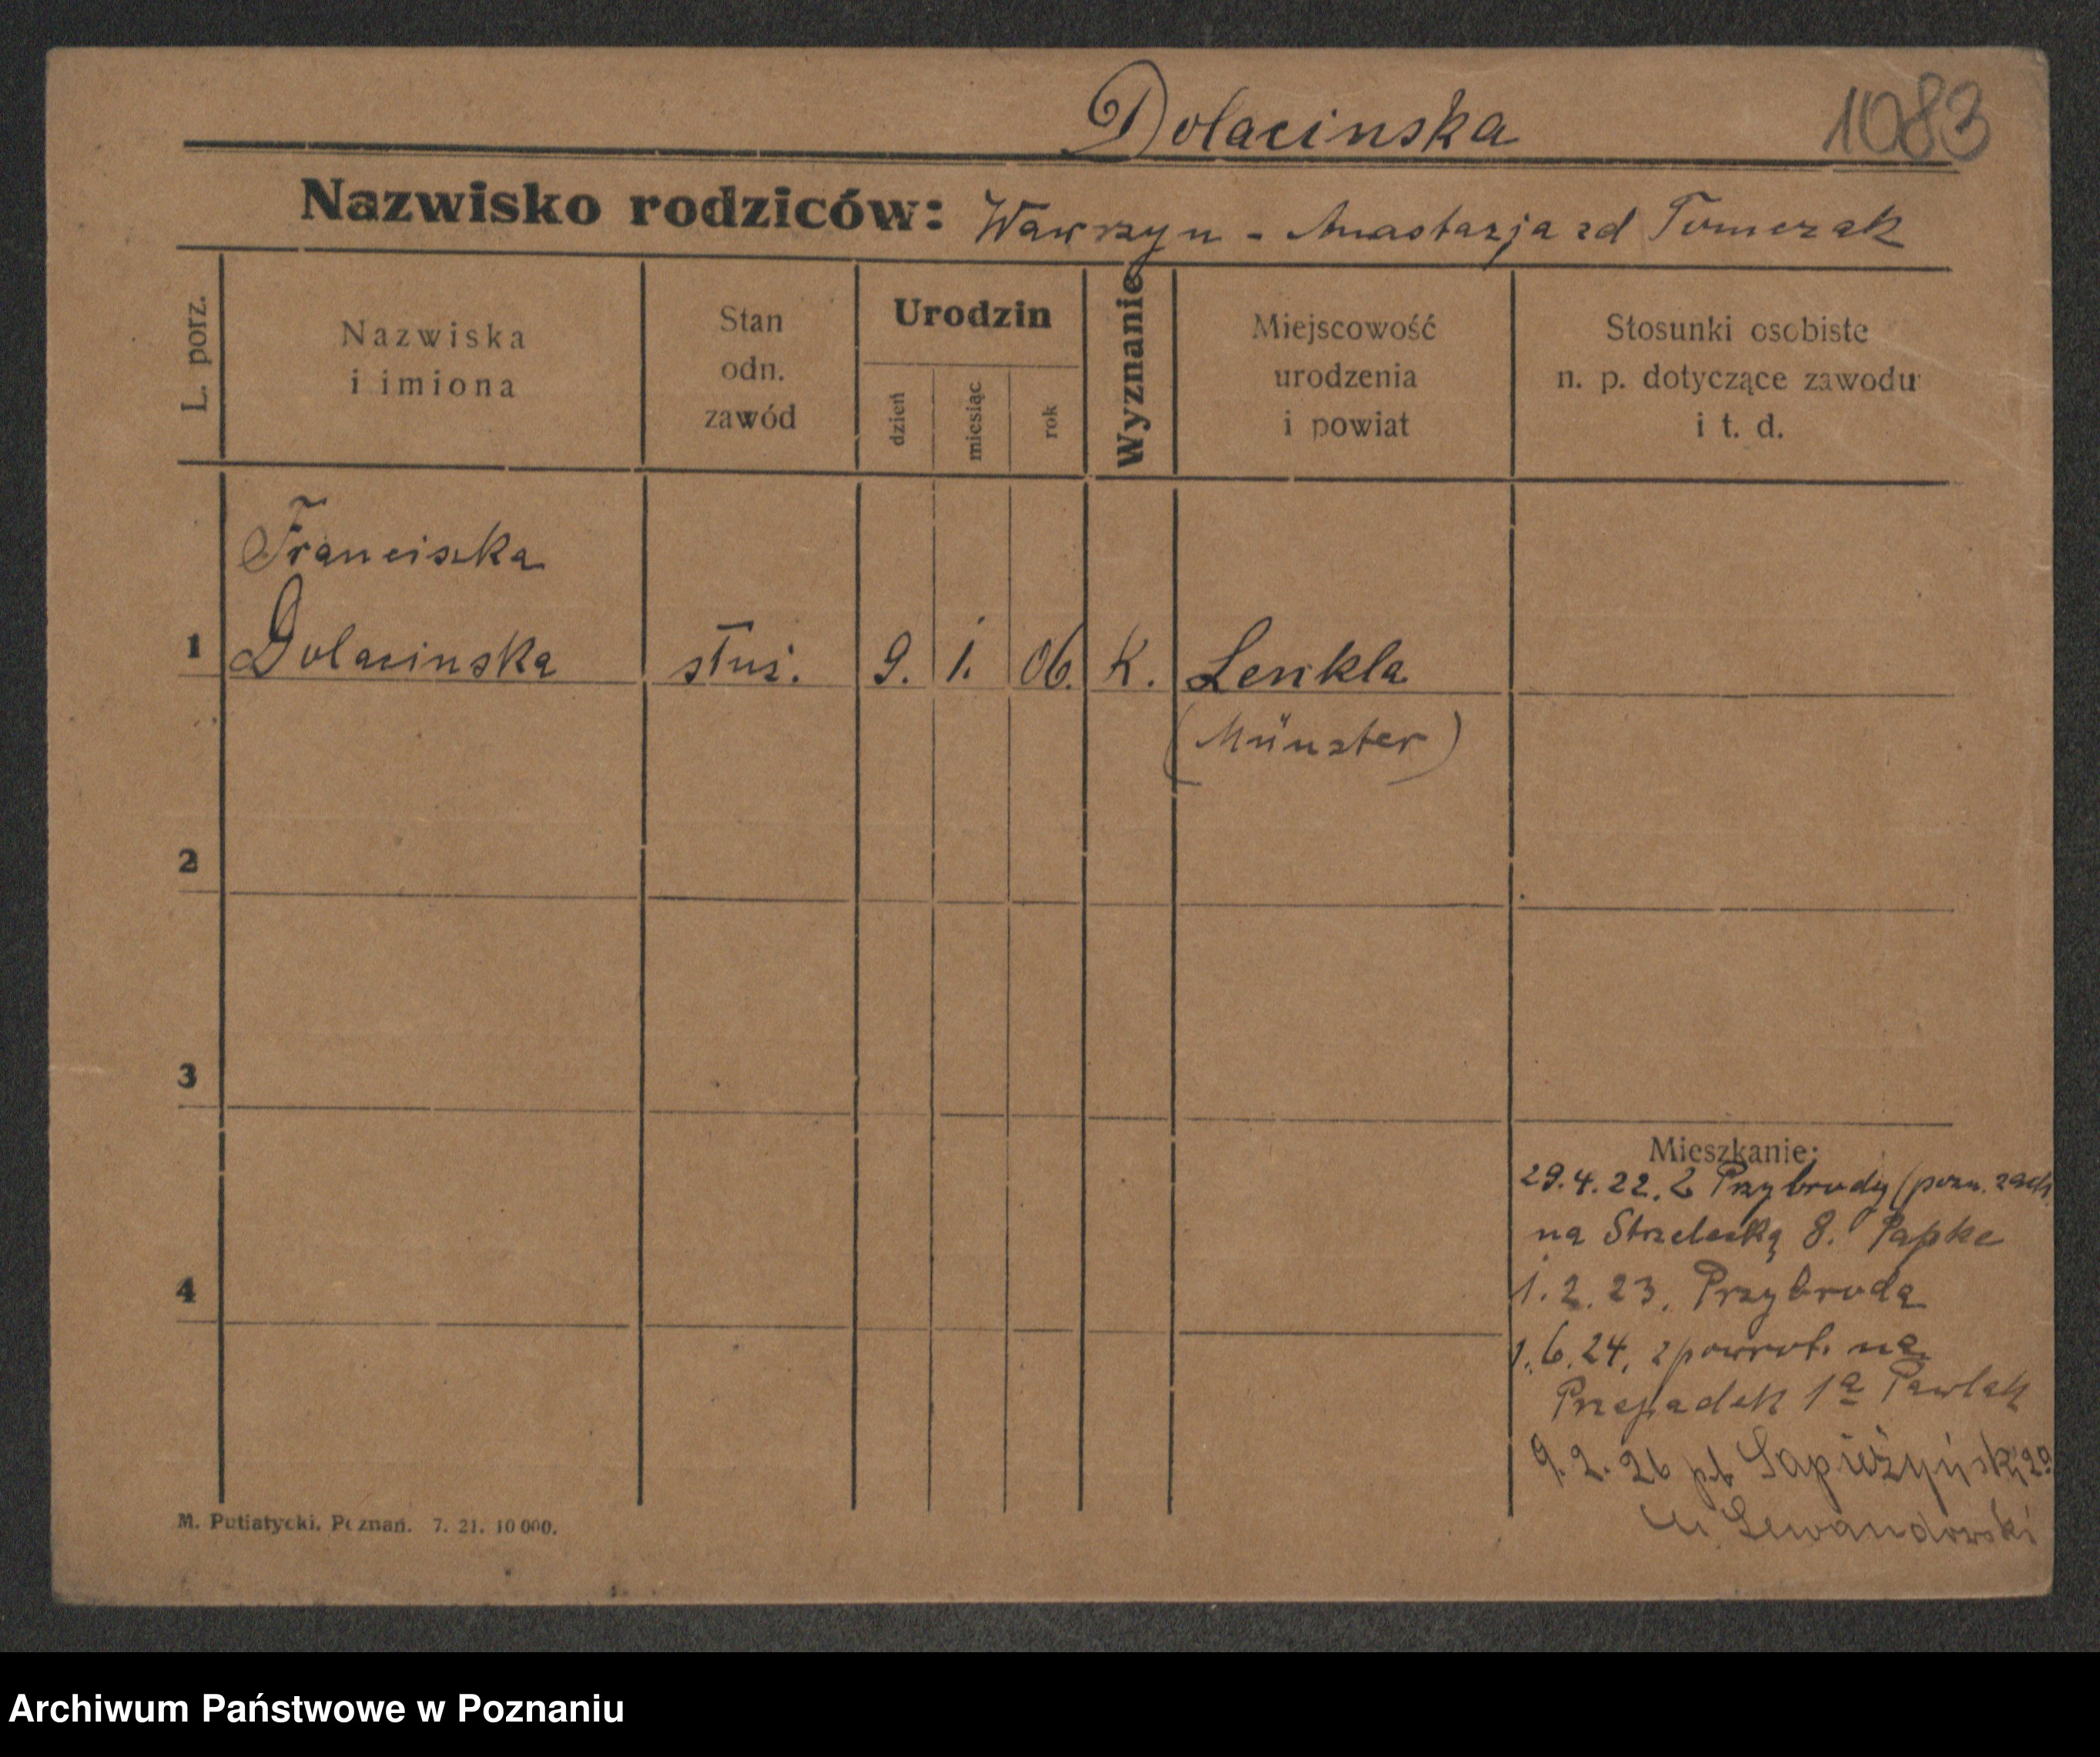 Dolacinska
1083
Nazwisko rodziców: Wawrzyn - Anastazja zd Tomczak
L. porz.
Nazwiska
i imiona
Stan
odn.
zawód
Urodzin
dzień
miesiąc
rok
Wyznanie
Miejscowość
urodzenia
i powiat
Stosunki osobiste
n. p. dotyczące zawodu
i t. d.
Franciszka
1 Dolacinska służ. 9. 1. 06. K.
(Münster)
2
3
4
Mieszkanie:
29.4.22. Z Przybrody (pozn. zach
na Strzelecką 8. Papke
1.2.23. Przybroda
1.6.24. zpowrot. na
Przepadek 1a Pawlak
9.2.26 pl. Sapieżyński 2a
u Lewandowski
M. Putiatycki. Poznań. 7. 21. 10 000.
Archiwum Państwowe w Poznaniu